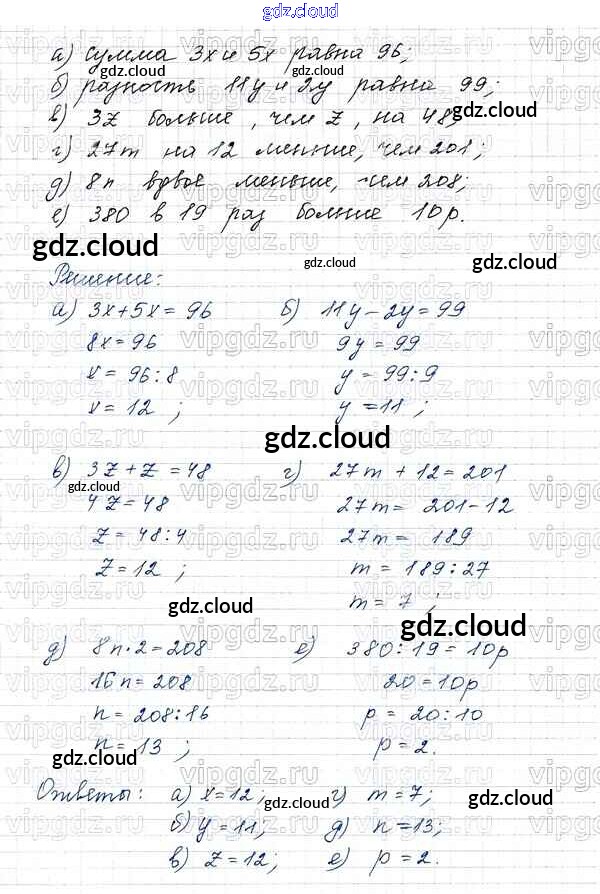 gdz.cloud
а) сумма 3x и 5x равна 96;
б) разность 11y и 2y равна 99;
в) 3z больше, чем z, на 48;
г) 27m на 12 меньше, чем 201;
д) 8n вдвое меньше, чем 208;
е) 380 в 19 раз больше 10p.
gdz.cloud
Решение:
а) 3x+5x=96
8x=96
x=96:8
x=12;
б) 11y-2y=99
9y=99
y=99:9
y=11;
gdz.cloud
в) 3z+z=48
4z=48
z=48:4
z=12;
г) 27m+12=201
27m=201-12
27m=189
m=189:27
m=7;
gdz.cloud
д) 8n·2=208
16n=208
n=208:16
n=13;
е) 380:19=10p
20=10p
p=20:10
p=2.
gdz.cloud
Ответы: а) x=12; г) m=7;
б) y=11; д) n=13;
в) z=12; е) p=2.
vipgdz.ru